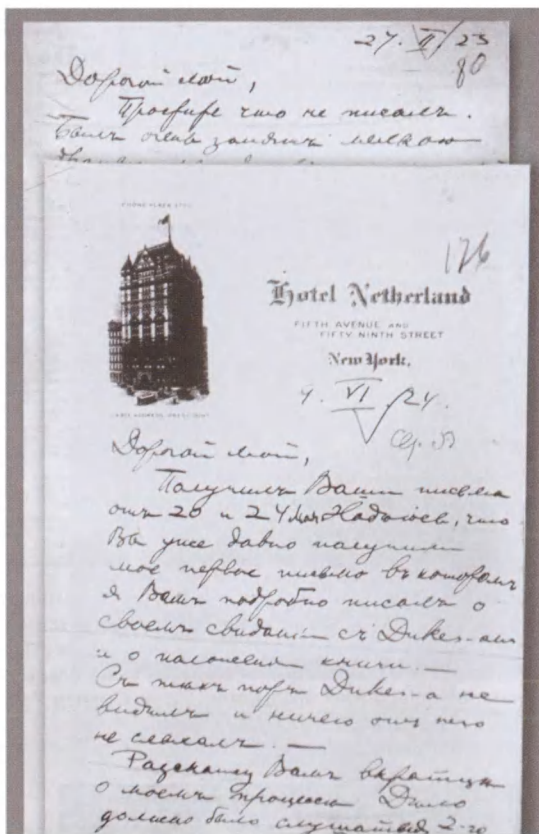 27. II / 23
80
Дорогой мой,
Простите что не писалъ.
Былъ очень занятъ мелкою
176
Hotel Netherland
FIFTH AVENUE AND
FIFTY NINTH STREET
New York,
9. VI / 24.
Дорогой мой,
Получилъ Ваши письма
отъ 20 и 24 мая Надеюсь, что
Вы уже давно получили
мое первое письмо въ которомъ
я Вамъ подробно писалъ о
своемъ свидании съ Dukes-омъ
и о положении книги. —
Съ техъ поръ Dukes-а не
виделъ и ничего отъ него
не слыхалъ. —
Разскажу Вамъ вкратце
о моемъ процессе Дело
должно было слушаться 2-го